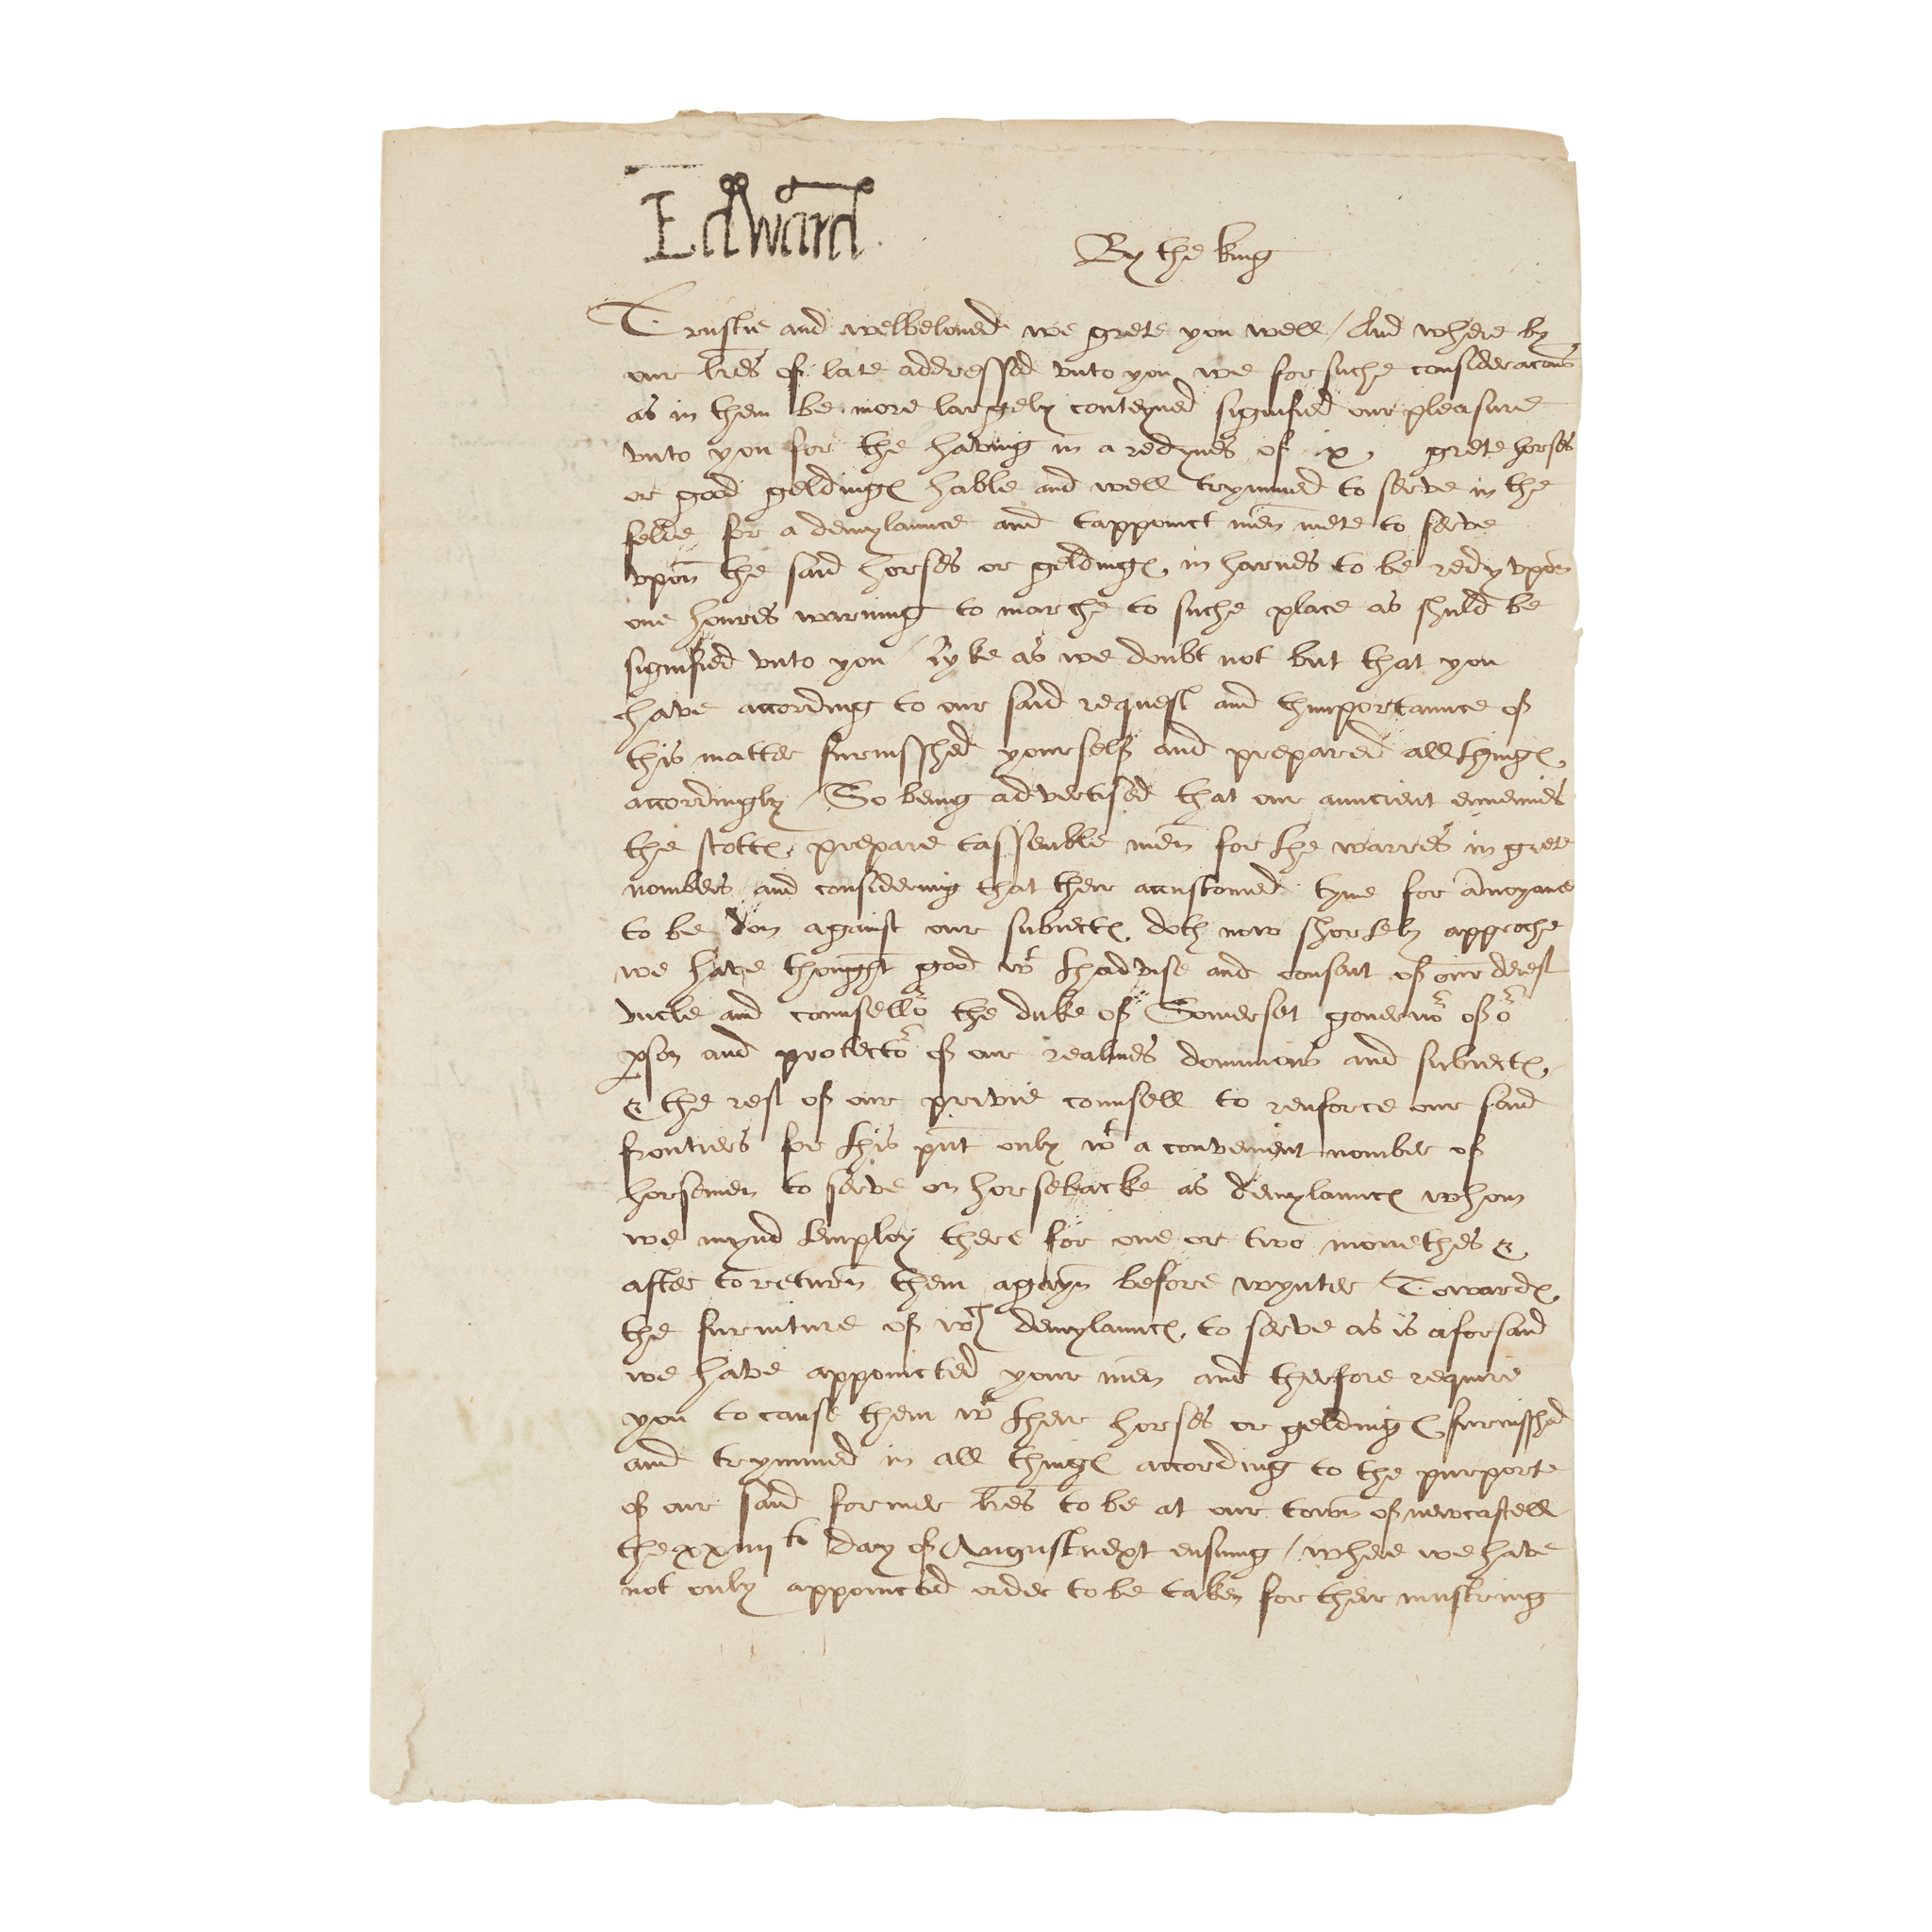 Edward
By the king
Trustie and welbeloued we grete you well / And where by
our lres of late addressed vnto you we for suche consideracons
as in them be more largely conteyned signified our pleasure
vnto you for the having in a redynes of x grete horses
or good geldinges hable and well trymmed to serve in the
felde for a demylaunce and tappoinct men mete to serve
vpon the said horses or geldinges in harnes to be redy vpon
one houres warning to marche to suche place as shuld be
signified vnto you / Lyke as we doubt not but that you
have according to our said request and thimportaunce of
this matter furnisshed yourself and prepared all thinges
accordingly / So being advertised that our auncient ennemies
the scottes prepare tassemble men for the warres in grete
nombers and considering that their accustomed tyme for anoyance
to be don against our subiectes doth now shortely approche
we have thought good wt thadvise and consent of our derest
vncle and counsellor the duke of Somerset gouernor of or
pson and protector of our realmes dominions and subiectes
& the rest of our privie counsell to renforce our said
frontiers for this pnt only wt a convenient nomber of
horsemen to serve on horsebacke as demylaunces whom
we mynd temploy there for one or two monethes &
after to return them agayn before wynter / Towardes
the furniture of wch demylaunces to serve as is aforsaid
we have appoincted your men and therfore require
you to cause them wt their horses or geldinges furnisshed
and trymmed in all thinges according to the purporte
of our said former lres to be at our town of newcastell
the xxiiij th day of August next ensuing / where we have
not only appoincted order to be taken for their mustring